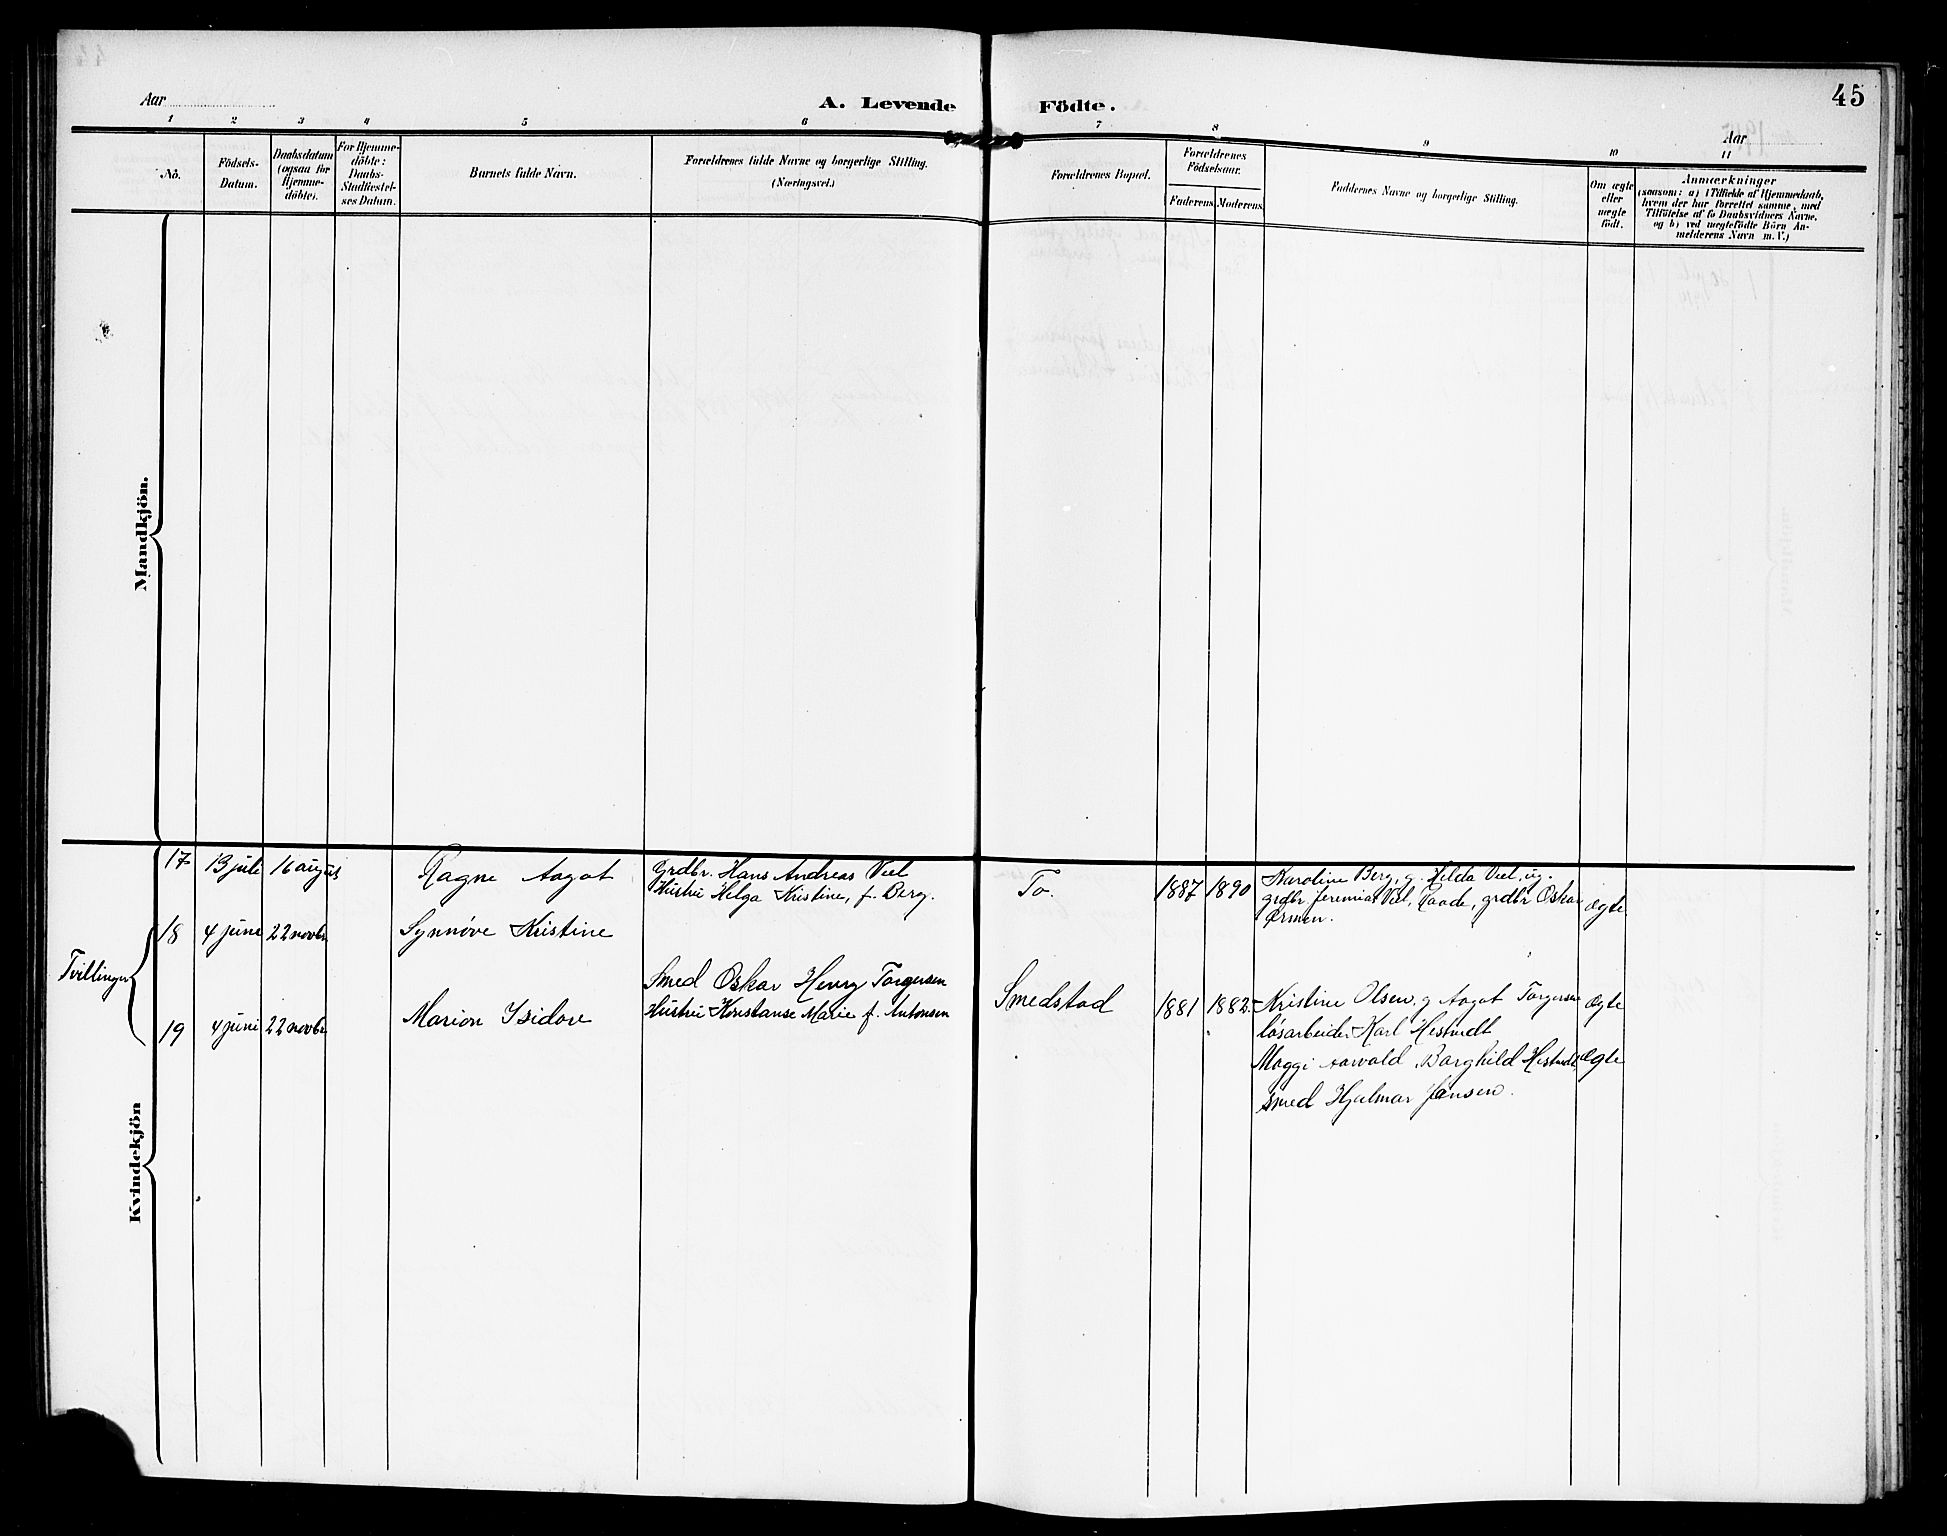 45
Aar
A. Levende Födte.
Aar
1 2 3 4 5 6 7 8 9 10 11
No.
Födsels-
Datum.
Daabsdatum
(ogsaa for
Hjemme-
döbte).
For Hjemme-
döbte:
Daabs-
Stadfæstel-
ses Datum.
Barnets fulde Navn.
Forældrenes fulde Navne og borgerlige Stilling.
(Næringsvei.)
Forældrenes Bopæl.
Forældrenes
Födselsaar.
Faderens Moderens
Faddernes Navne og borgerlige Stilling.
Om ægte
eller
uægte
födt.
Anmærkninger
(saasom: a) i Tilfælde af Hjemmedaab,
hvem der har forrettet samme, med
Tilföielse af to Daabsvidners Navne.
og b) ved uægtefödte Börn An-
melderens Navn m. V.)
Mandkjön.
Kvindekjön
17 13 juli 16 august Ragne Aagot
Grdbr. Hans Andreas Viel
Hustru Helga Kristine, f. Berg.
To. 1887 1890
Karoline Berg, g. Hilda Viel, ug.
grdbr Jeremias Viel, Raade, grdbr Oskar
Ørmen.
ægte
Tvillinger
18 4 juni 22 novbr Synnøve Kristine
Smed Oskar Henry Torgersen
Hustru Konstanse Marie f. Antonsen
Smedstad 1881 1882
Kristine Olsen, g Aagot Torgersen
løsarbeider Karl Hestvedt
ægte
19 4 juni 22 novbr Marion Isidove
Maggi Aarvold, Borghild Hestvedt,
smed Hjalmar Jansen.
ægte